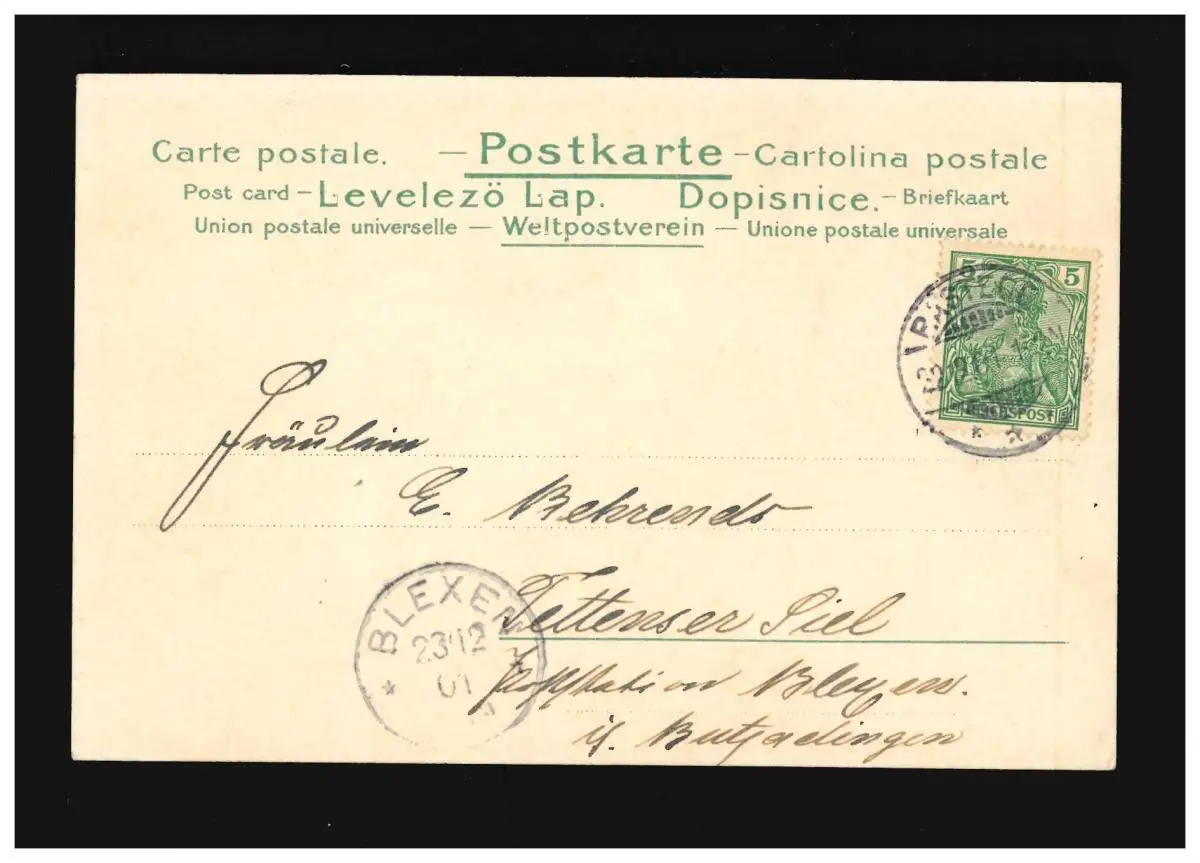 Carte postale. — Postkarte – Cartolina postale
Post card – Levelezö Lap. Dopisnice. – Briefkaart
Union postale universelle — Weltpostverein — Unione postale universale
5 5
REICHSPOST
RASTEDE
Fräulein
E. Behrends
Tettenser Siel
Poststation Blexen.
i/. Butjadingen
BLEXEN
23 12
01